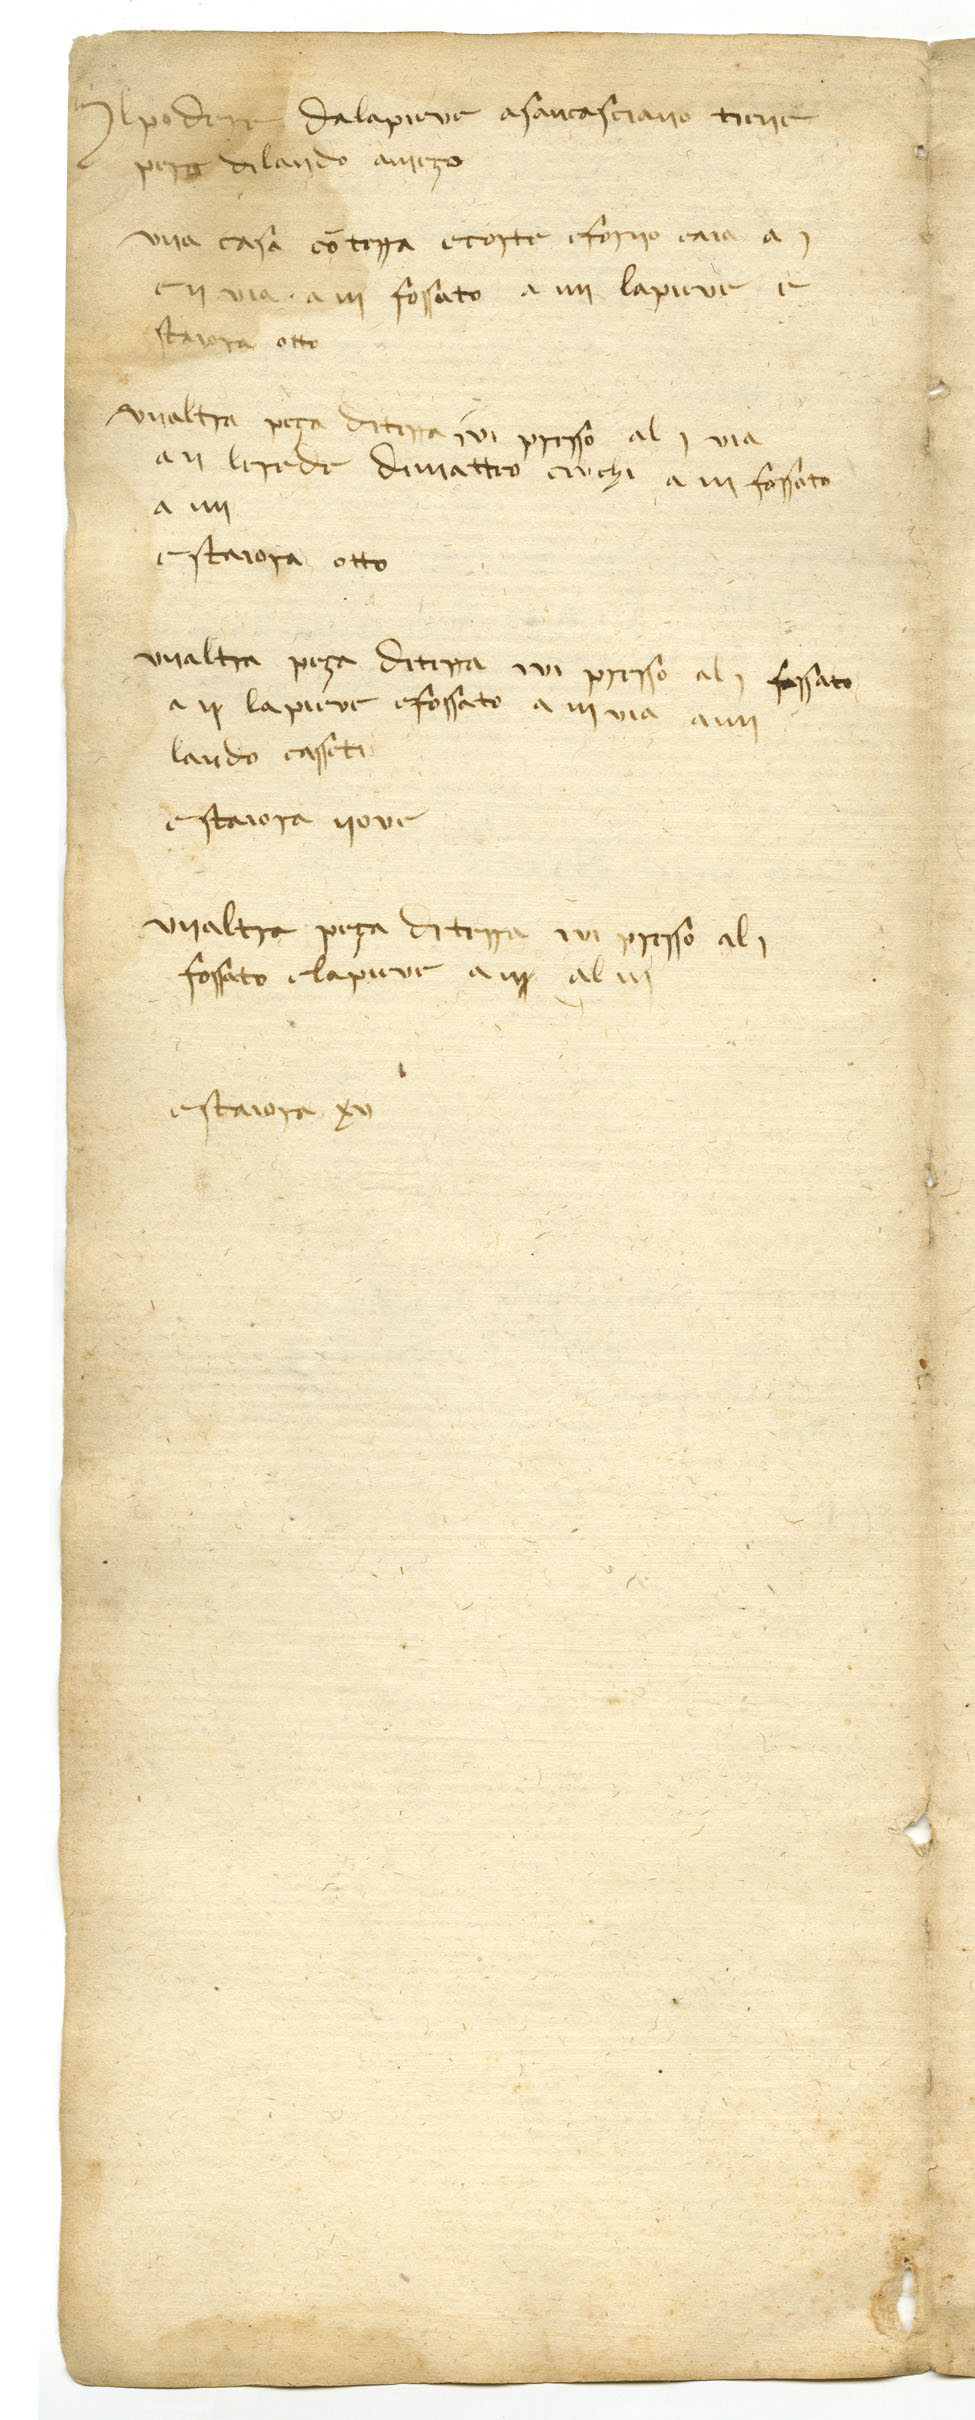 Il podere dalapieve asancasciano tiene
pero dilando amezo
una casa cō terra ecorte eforno eaia a j
e ij via · a iij fossato a iiij lapieve e
staiora otto
unaltra peza diterra ivi presso al j via
a ij lerede dimatteo a iij fossato
a iiij
e staiora otto
unaltra peza diterra ivi presso al j fossato
a ij lapieve efossato a iij via a iiij
lando casseti
e staiora nove
unaltra peza di terra ivi presso al j
fossato elapieve a ij al iij
e staiora xv